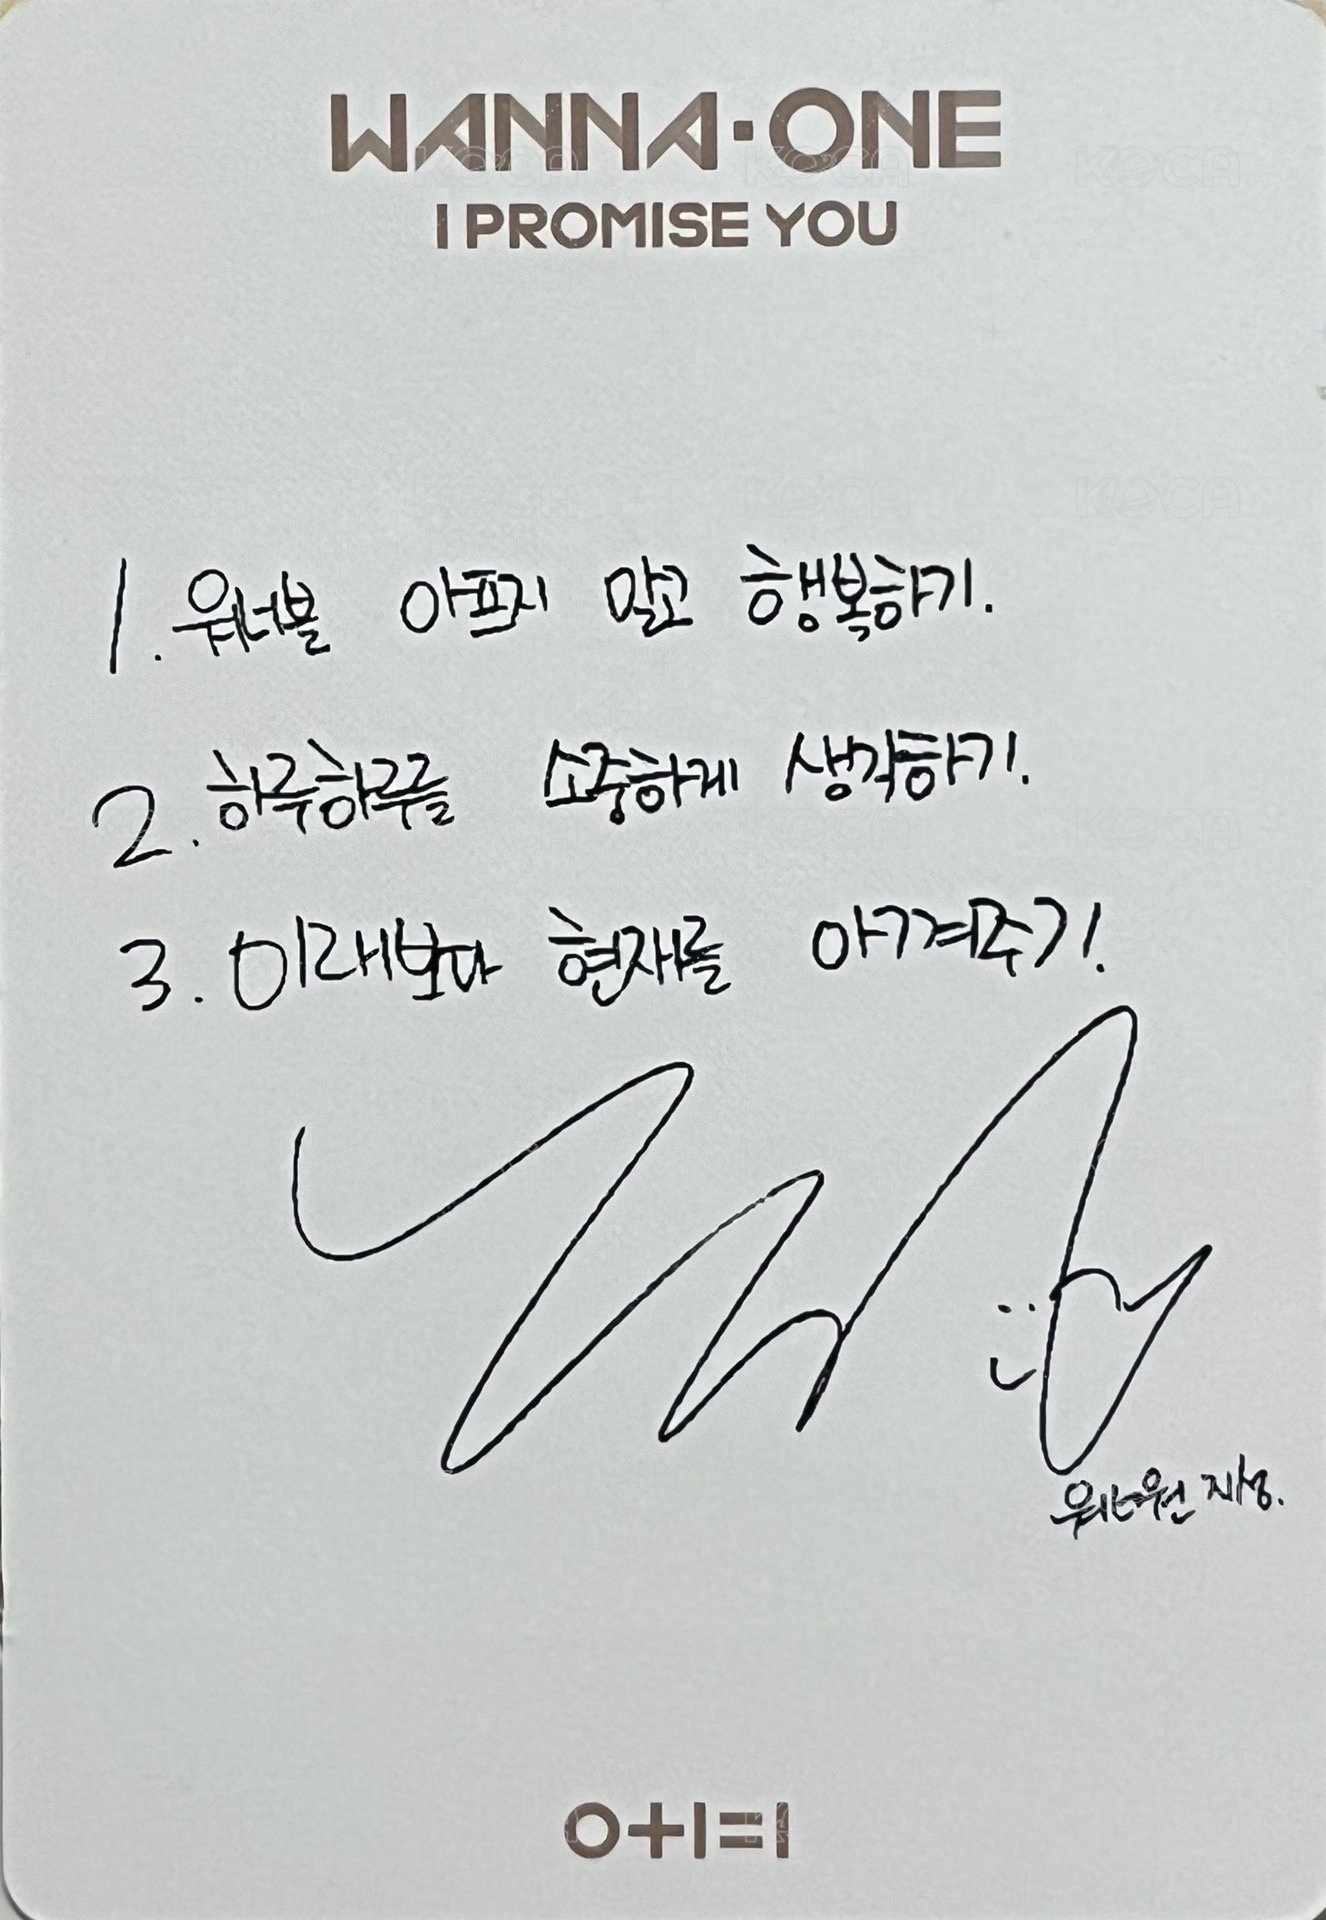 WANNA·ONE
I PROMISE YOU
1. 워너블 아프지 말고 행복하기.
2. 하루하루를 소중하게 생각하기.
3. 미래보다 현재를 아껴주기!
워너원 지성.
0+1=1